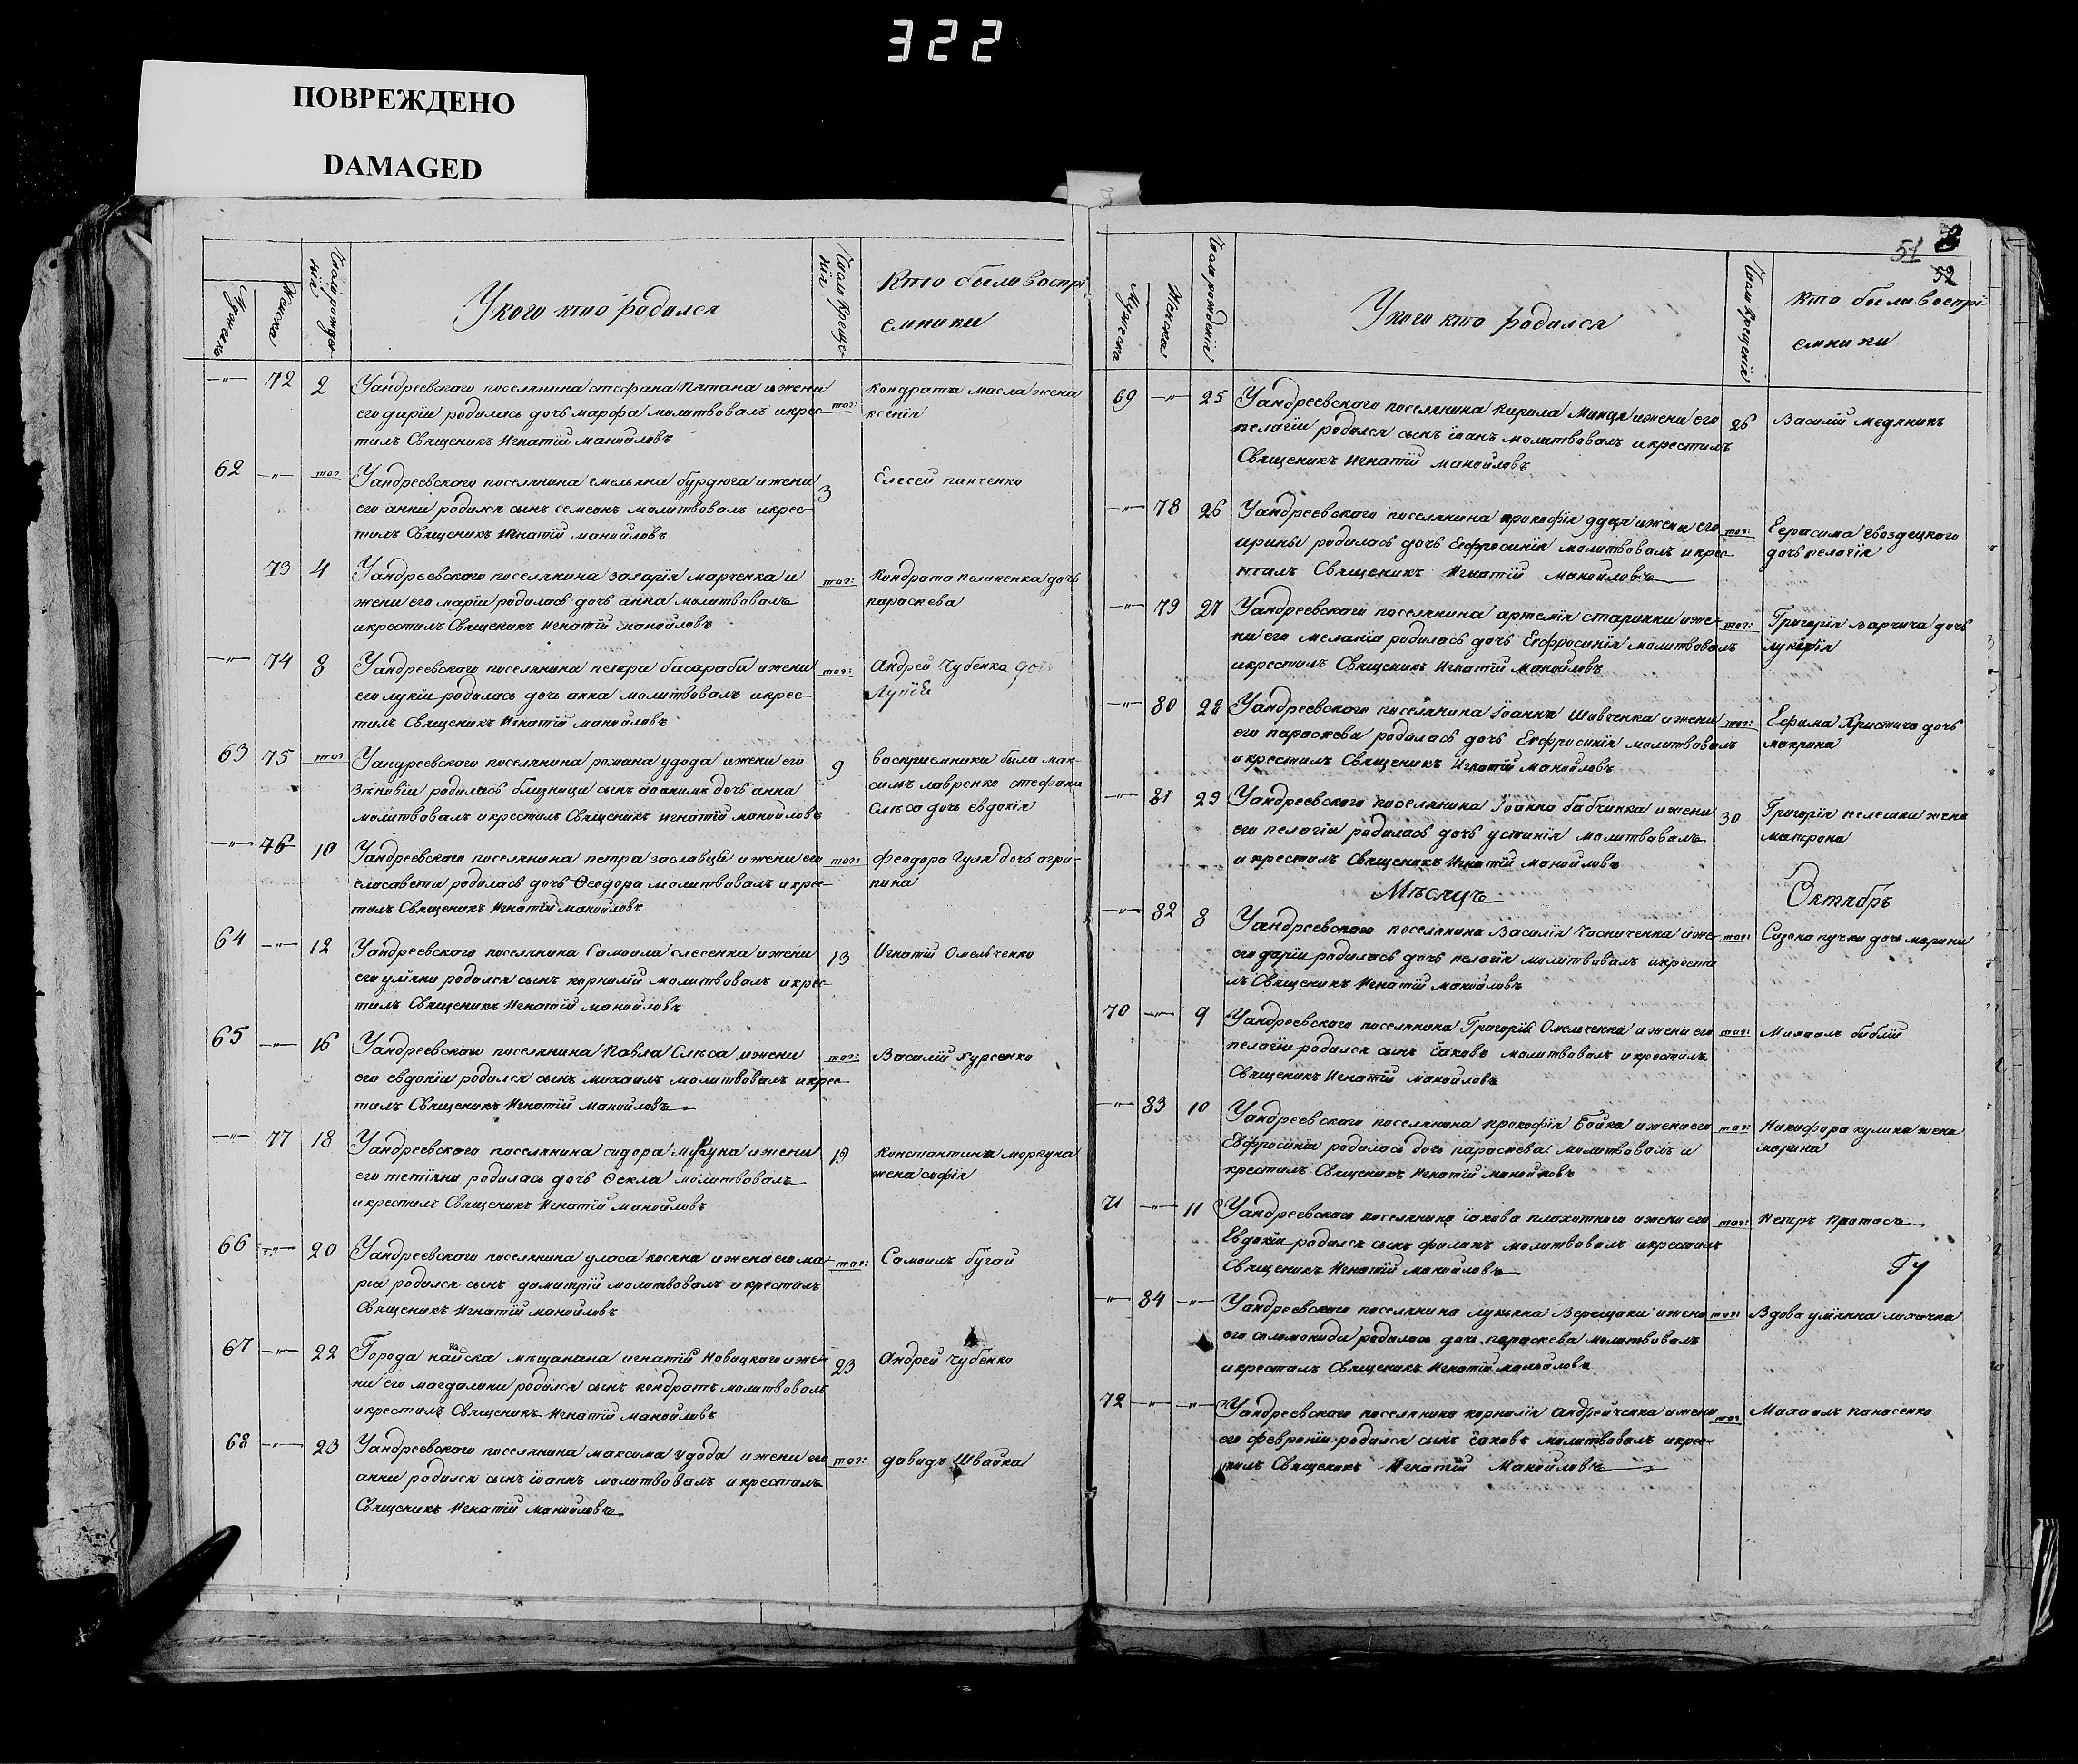 322
ПОВРЕЖДЕНО
DAMAGED
Мужеск
Женска
Числа рожденія
У кого кто родился
Числа крещенія
Кто были воспрі
емники
—"— 72 2 У андреевского поселянина стефана Пятана и жени
его дарїи родилась дочь марфа молитвовалъ и крес тог:
тилъ Священикъ Игнатїй маноиловъ
кондрата масла жена
ксенїя
62 —"— тог У андреевского поселянина емельяна бурдюга и жени 3
его анни родился сынъ семеонъ молитвовалъ и крес-
тилъ Священикъ Игнатїй маноиловъ
Елесей панченко
73 4 У андреевского поселянина захарїя марченка и тог:
жени его марїи родилась дочь анна молитвовалъ
и крестилъ Священикъ Игнатїй маноиловъ
Кондрата пелипенка дочь
параскева
—"— 74 8 У андреевского поселянина петра басараба и жени тог:
его лукїи родилась дочь анна молитвовалъ и крес-
тилъ Священикъ Игнатїй маноиловъ
Андрей Чубенка дочь
63 75 тог У андреевского поселянина романа удода и жени его 9
зѣновїи родилась близници сынъ иоакимъ дочь анна
молитвовалъ и крестилъ Священикъ игнатїй маноиловъ
восприемники были мак-
симъ лавренко стефана
Слѣса дочь евдокїя
—"— 76 10 У андреевского поселянина петра заславца и жени его тог:
елисавети родилась дочь Феодора молитвовалъ и крес-
тилъ Священикъ Игнатїй маноиловъ
феодора Гуля дочь агри-
пина
64 —"— 12 У андреевского поселянина Самоила слесенка и жени 13
его улїяни родился сынъ корнилїй молитвовалъ и крес-
тилъ Священикъ Игнатїй маноиловъ
Игнатїй Омельченко
65 —"— 16 У андреевского поселянина Павла Слѣса и жени тог:
его евдокїи родился сынъ михаилъ молитвовалъ и крес-
тилъ Священикъ Игнатїй маноиловъ
Василїй Курсенко
—"— 77 18 У андреевского поселянина сидора и жени 19
его тетїяни родилась дочь Фекла молитвовалъ
и крестилъ Священикъ Игнатїй маноиловъ
Константина моргуна
жена софїя
66 —"— 20 У андреевского поселянина уласа косяна и жени его ма- тог:
рїи родился сынъ димитрїй молитвовалъ и крестилъ
Священикъ Игнатїй маноиловъ
Самоилъ бугай
67 —"— 22 Города мѣщанина игнатїя Новицкого и же- 23
ни его магдалини родился сынъ кондратъ молитвовалъ
и крестилъ Священикъ Игнатїй маноиловъ
Андрей Чубенко
68 —"— 23 У андреевского поселянина максима удода и жени его тог:
анни родился сынъ їоаннъ молитвовалъ и крестилъ
Священикъ Игнатїй маноиловъ
давидъ Швайка
51
52
Мужеска
Женска
Числа рожденїя
У кого кто родился
Числа крещенїя
кто были воспрі-
емники
69 —"— 25 У андреевского поселянина Кирила Минця и жени его 26
пелагїи родился сынъ їоанъ молитвовалъ и крестилъ
Священикъ Игнатїй маноиловъ
Василїй медяникъ
—"— 78 26 У андреевского поселянина прокофїя и жени его тог:
ирины родилась дочь Евфросинїя молитвовалъ и крес-
тилъ Священикъ Игнатїй маноиловъ
Герасима гвоздецкого
дочь пелагїя
—"— 79 27 У андреевского поселянина артемїя старикки и же- тог:
ни его меланїи родилась дочь Евфросинїя молитвовалъ
и крестилъ Священикъ Игнатїй маноиловъ
Григорїя варчича дочь
лукерїя
—"— 80 28 У андреевского поселянина їоанна Шевченка и жени тог:
его параскева родилась дочь Евфросинїя молитвовалъ
и крестилъ Священикъ Игнатїй маноиловъ
Ефима Христича дочь
макрина
—"— 81 29 У андреевского поселянина їоанна бабчинка и жени 30
его пелагїи родилась дочь устинїя молитвовалъ
и крестилъ Священикъ Игнатїй маноиловъ
Григорїя пелешки жена
матрона
Мѣсяцъ Октябрь
—"— 82 8 У андреевского поселянина Василїя Часниченка и же- тог:
его дарїи родилась дочь пелагїя молитвовалъ и крести
лъ Священикъ Игнатїй маноиловъ
Созона кучки дочь марина
70 —"— 9 У андреевского поселянина Григорїя Омельченка и жени его тог:
пелагїи родился сынъ їаковъ молитвовалъ и крестилъ
Священикъ Игнатїй маноиловъ
Михаилъ библїй
—"— 83 10 У андреевского поселянина прокофїя Бойка и жени его тог:
Евфросинїи родилась дочь параскева молитвовалъ и
крестилъ Священикъ Игнатїй маноиловъ
Никифора кулика жена
марина
71 —"— 11 У андреевского поселянина їакова плахотного и жени его тог:
Евдокїи родился сынъ филипъ молитвовалъ и крестилъ
Священикъ Игнатїй маноиловъ
Петръ Протасъ
—"— 84 —"— У андреевского поселянина лукьяна Верещаки и жени тог:
его соломониди родилась дочь параскева молитвовалъ
и крестилъ Священикъ Игнатїй маноиловъ
Вдова улїянна лихачка
72 —"— —"— У андреевского поселянина корнилїя андрейченка и жени тог:
его февронїи родился сынъ їаковъ молитвовалъ и крес-
тилъ Священикъ Игнатїй Маноиловъ
Михаилъ панасенко